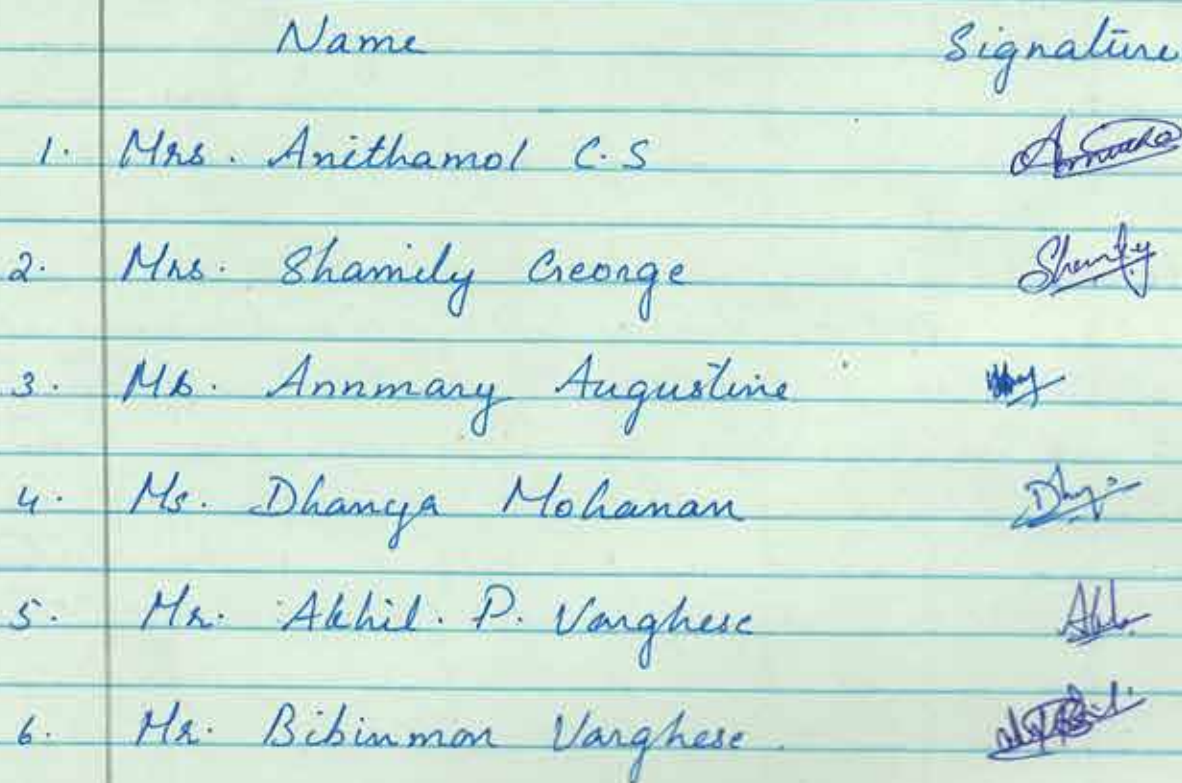 Name Signature
1. Mrs. Anithamol C.S
2. Mrs. Shamily George Shamily
3. Ms. Annmary Augustine
4. Ms. Dhanya Mohanan
5. Mr. Akhil. P. Varghese
6. Mr. Bibinmon Varghese.